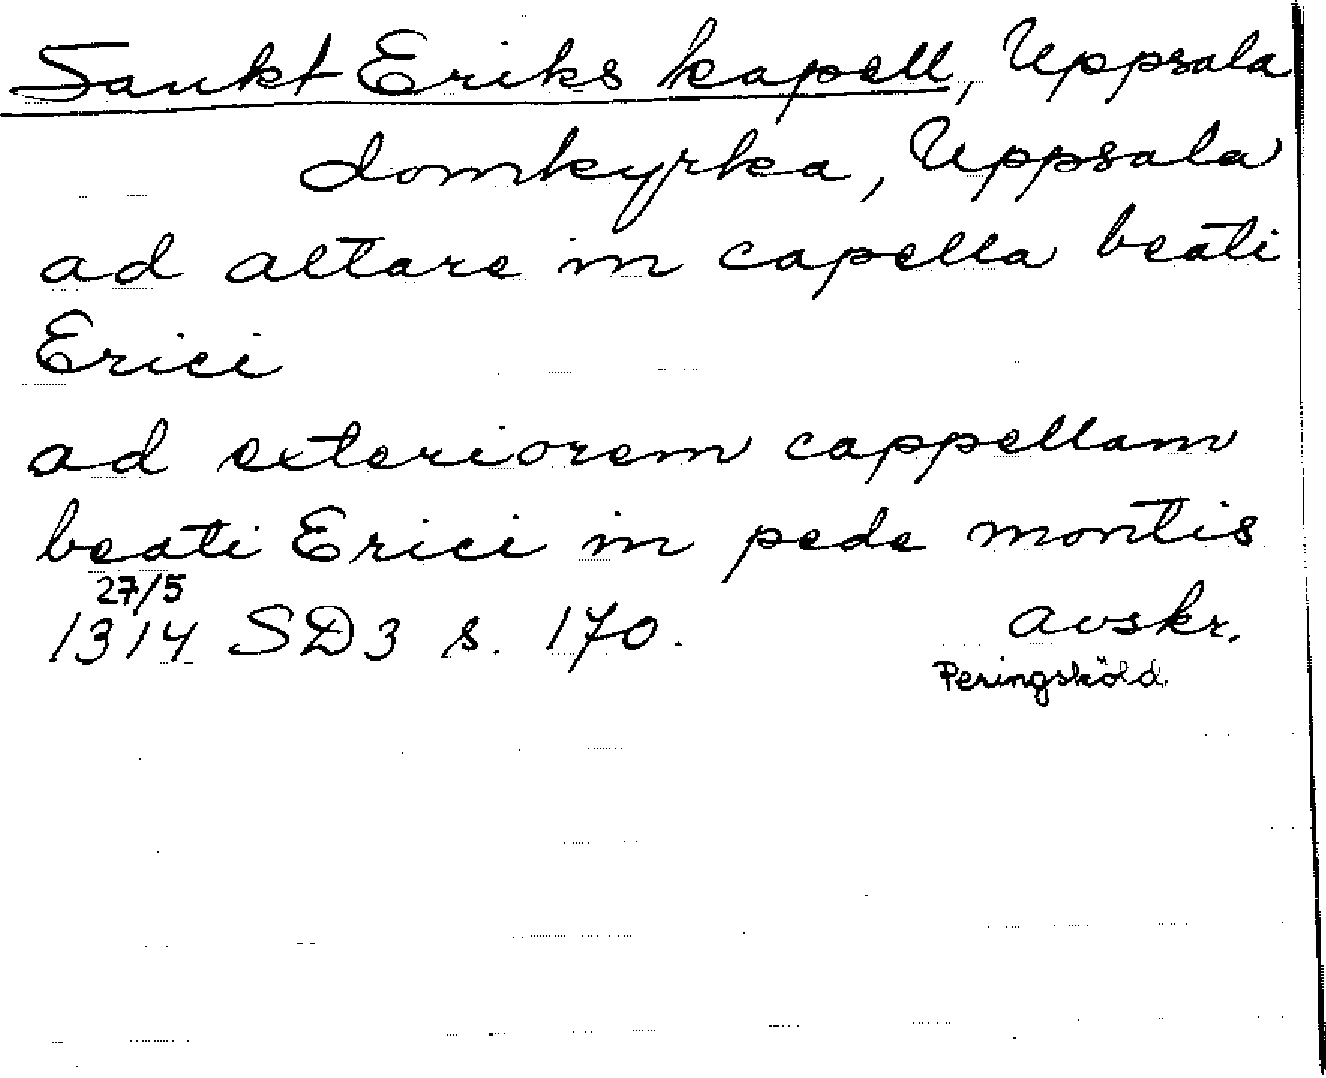 Sankt Eriks kapell, Uppsala
domkyrka, Uppsala
ad altare in capella beati
Erici
ad exteriorem cappellam
beati Erici in pede montis
27/5
1314 SD3 s. 170. avskr.
Peringsköld.